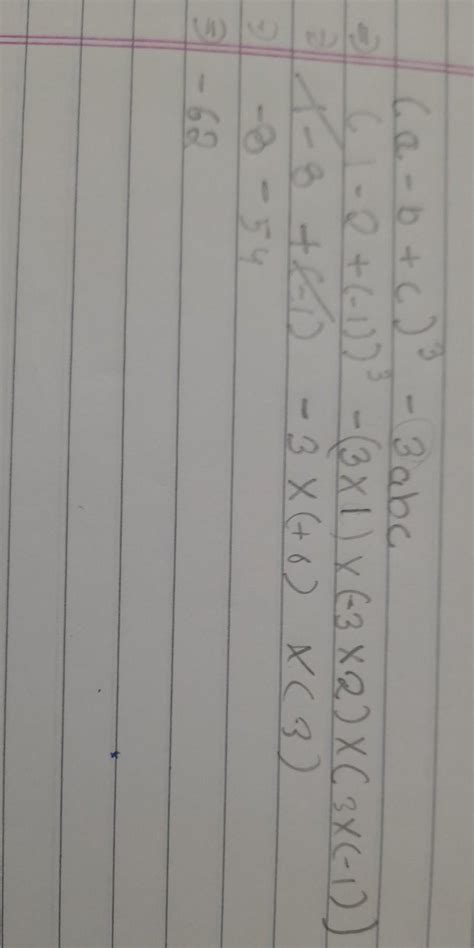 (a-b+c)³ - 3abc
=) (1-2+(-1))³ - (3×1)×(-3×2)×(3×(-1))]
=) 1-8+(-1) - 3×(+6) ×(3)
=) -8 - 54
=) -62